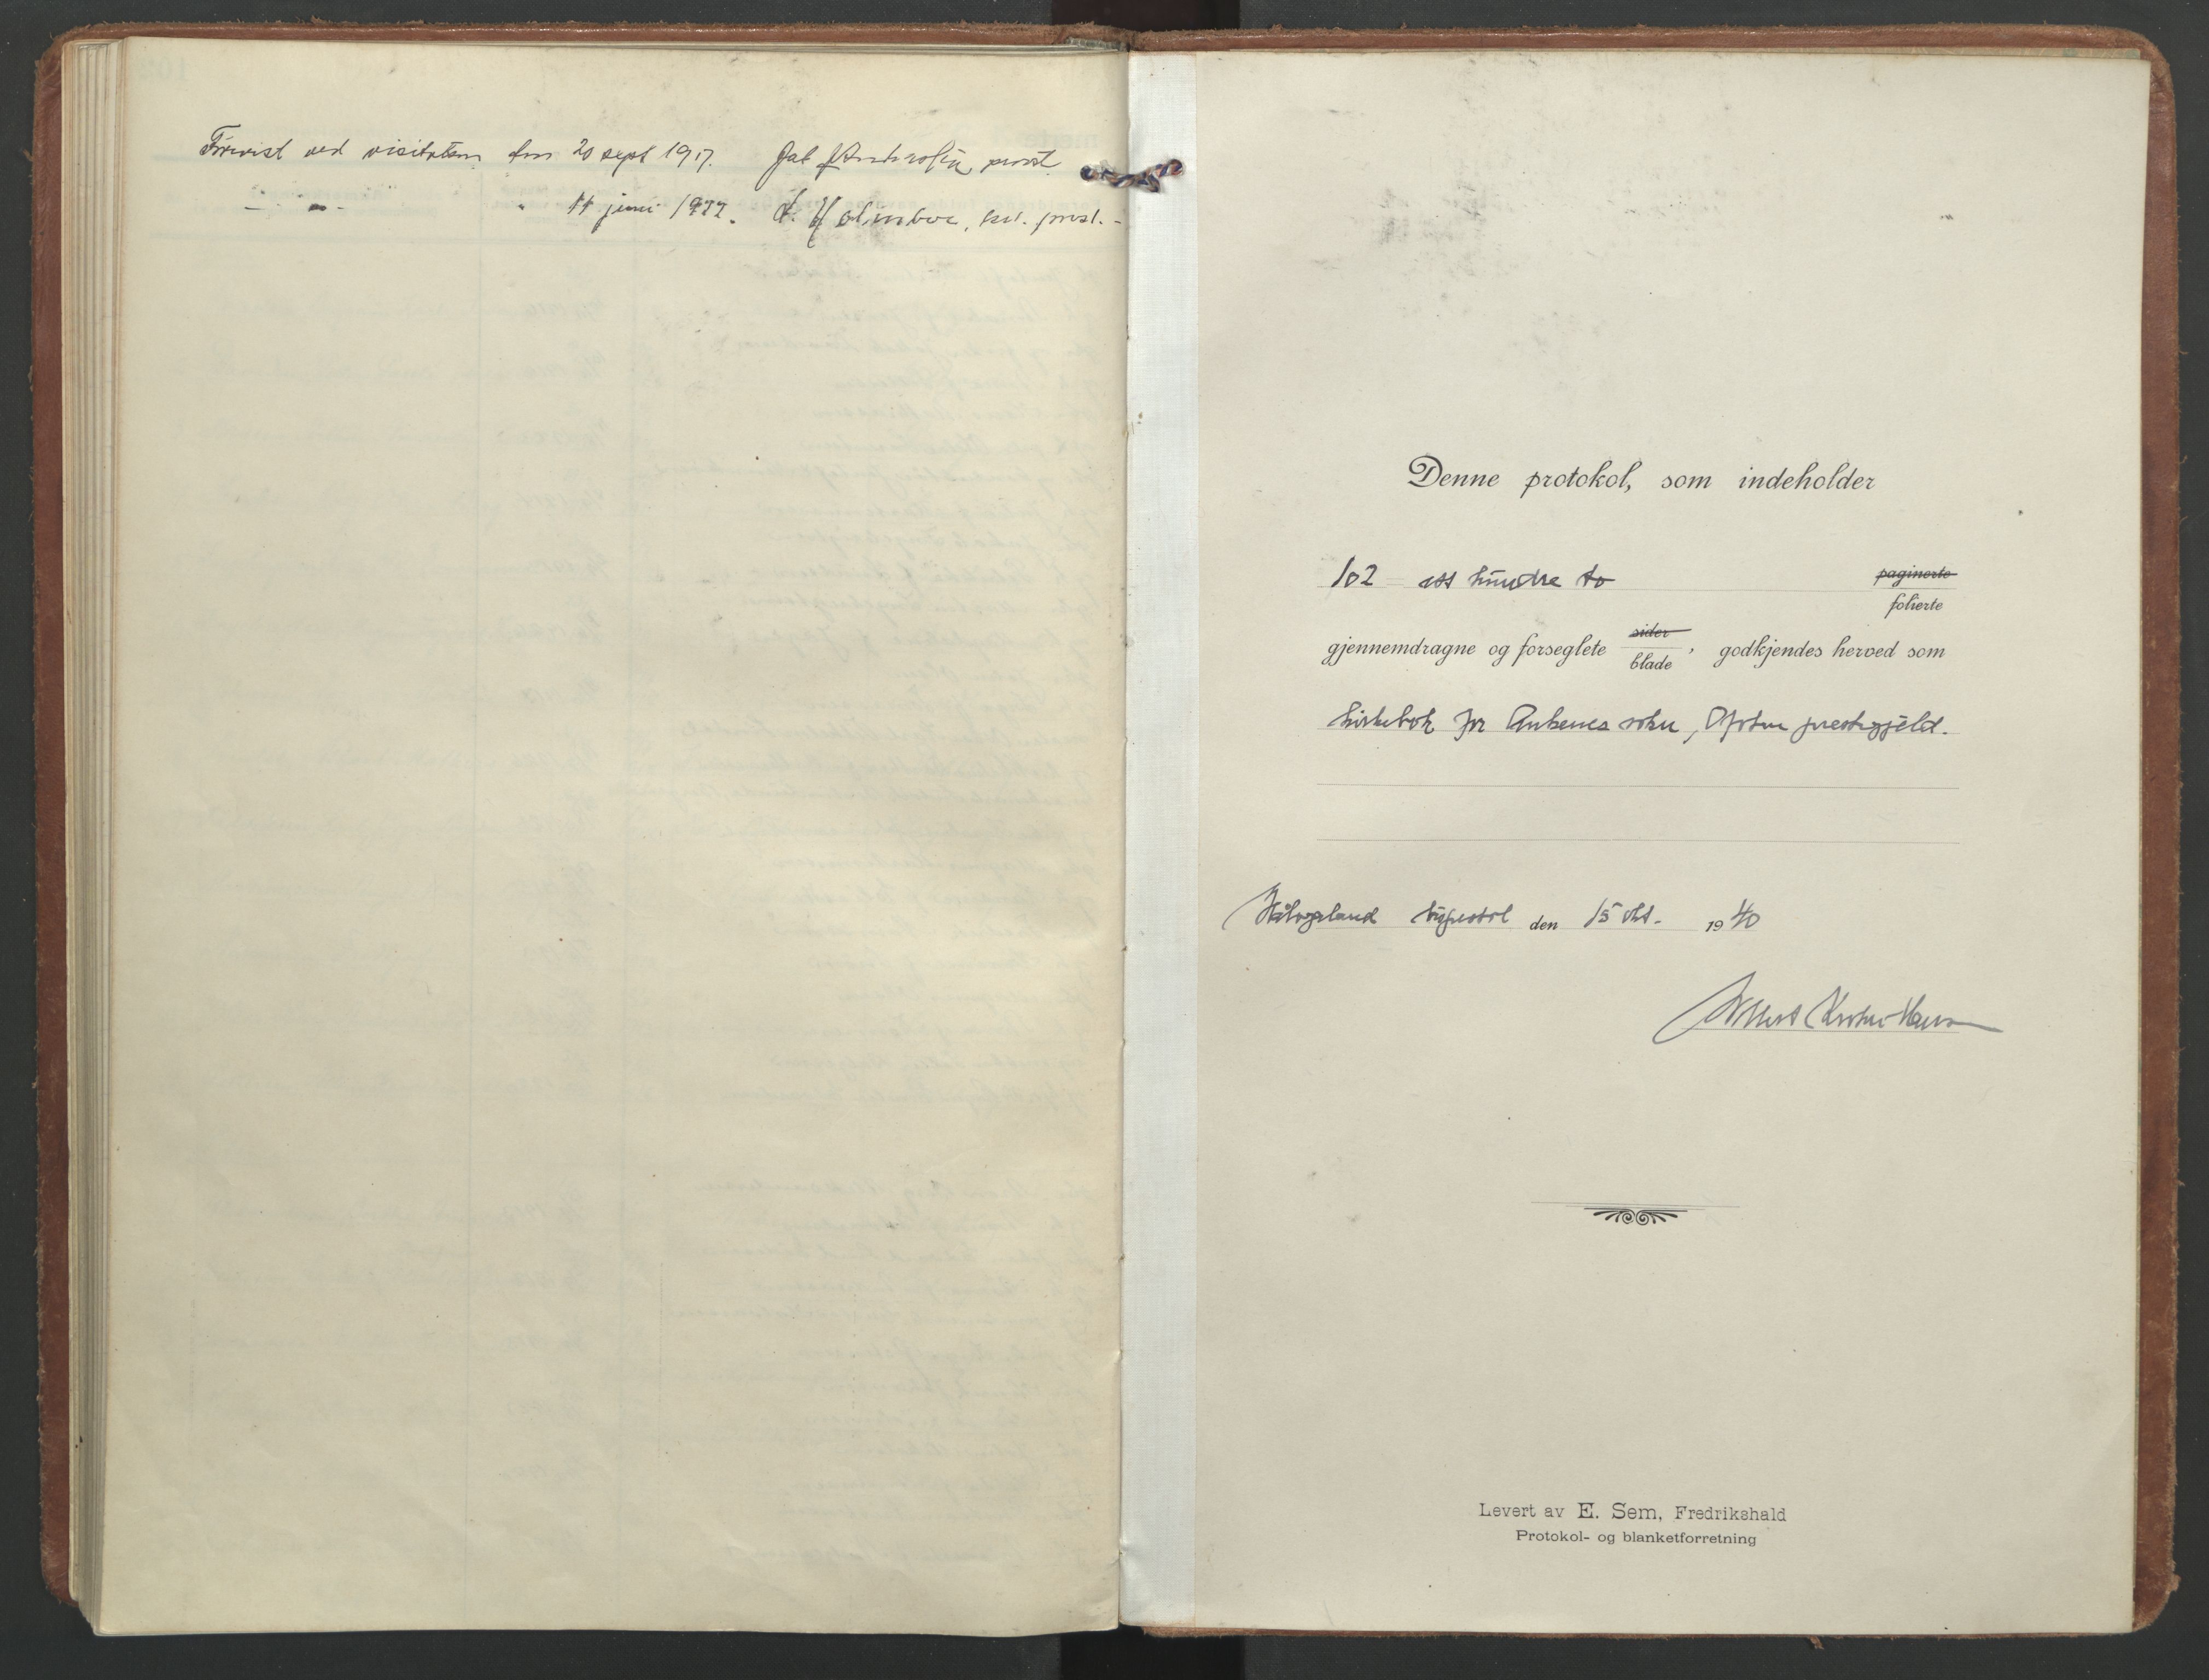 Forevist ved visitatsen den 20 sept 1917. prost.
- " - " 11 juni 1922. J. Holmboe, kst. prost. -
Denne protokol, som indeholder
102 ett hundre to paginerte
folierte
gjennemdragne og forseglete sider blade, godkjendes herved som
kirkebok for Ankenes sokn, Ofoten prestegjeld.
Hålogaland bispestol den 15 okt. 1940
Levert av E. Sem, Fredrikshald
Protokol- og blanketforretning